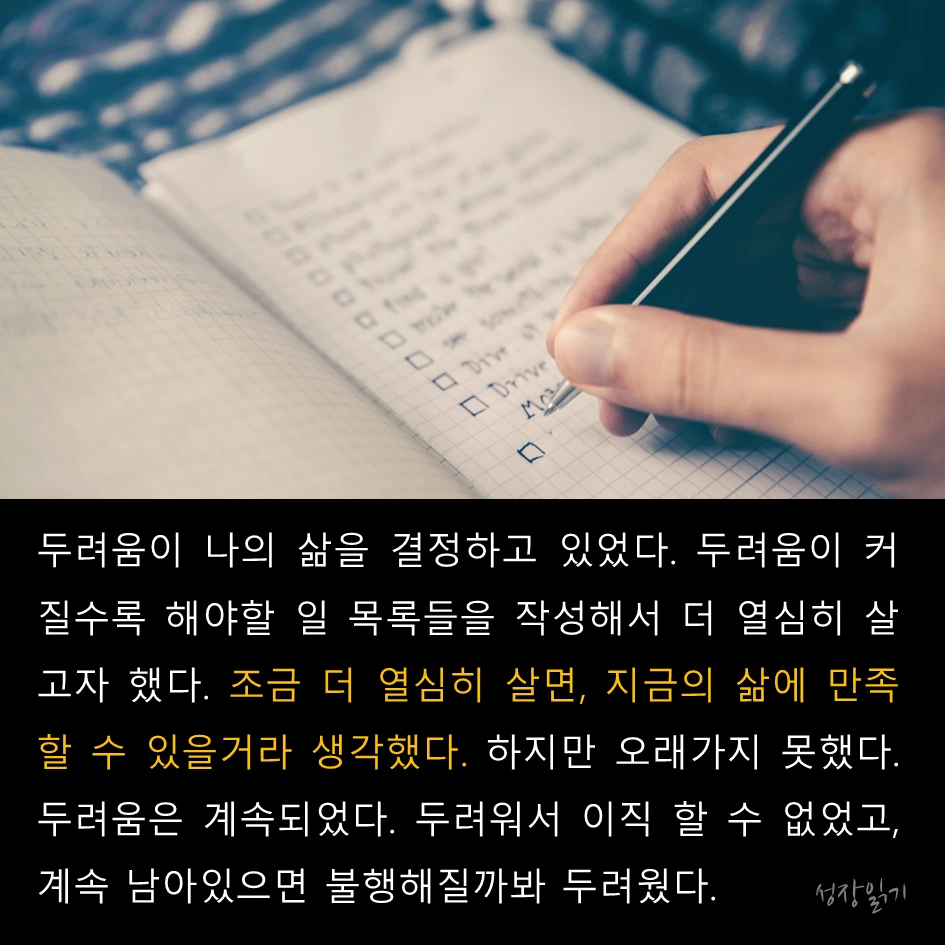 Drive
두려움이 나의 삶을 결정하고 있었다. 두려움이 커
질수록 해야할 일 목록들을 작성해서 더 열심히 살
고자 했다. 조금 더 열심히 살면, 지금의 삶에 만족
할 수 있을거라 생각했다. 하지만 오래가지 못했다.
두려움은 계속되었다. 두려워서 이직 할 수 없었고,
계속 남아있으면 불행해질까봐 두려웠다.
성장읽기